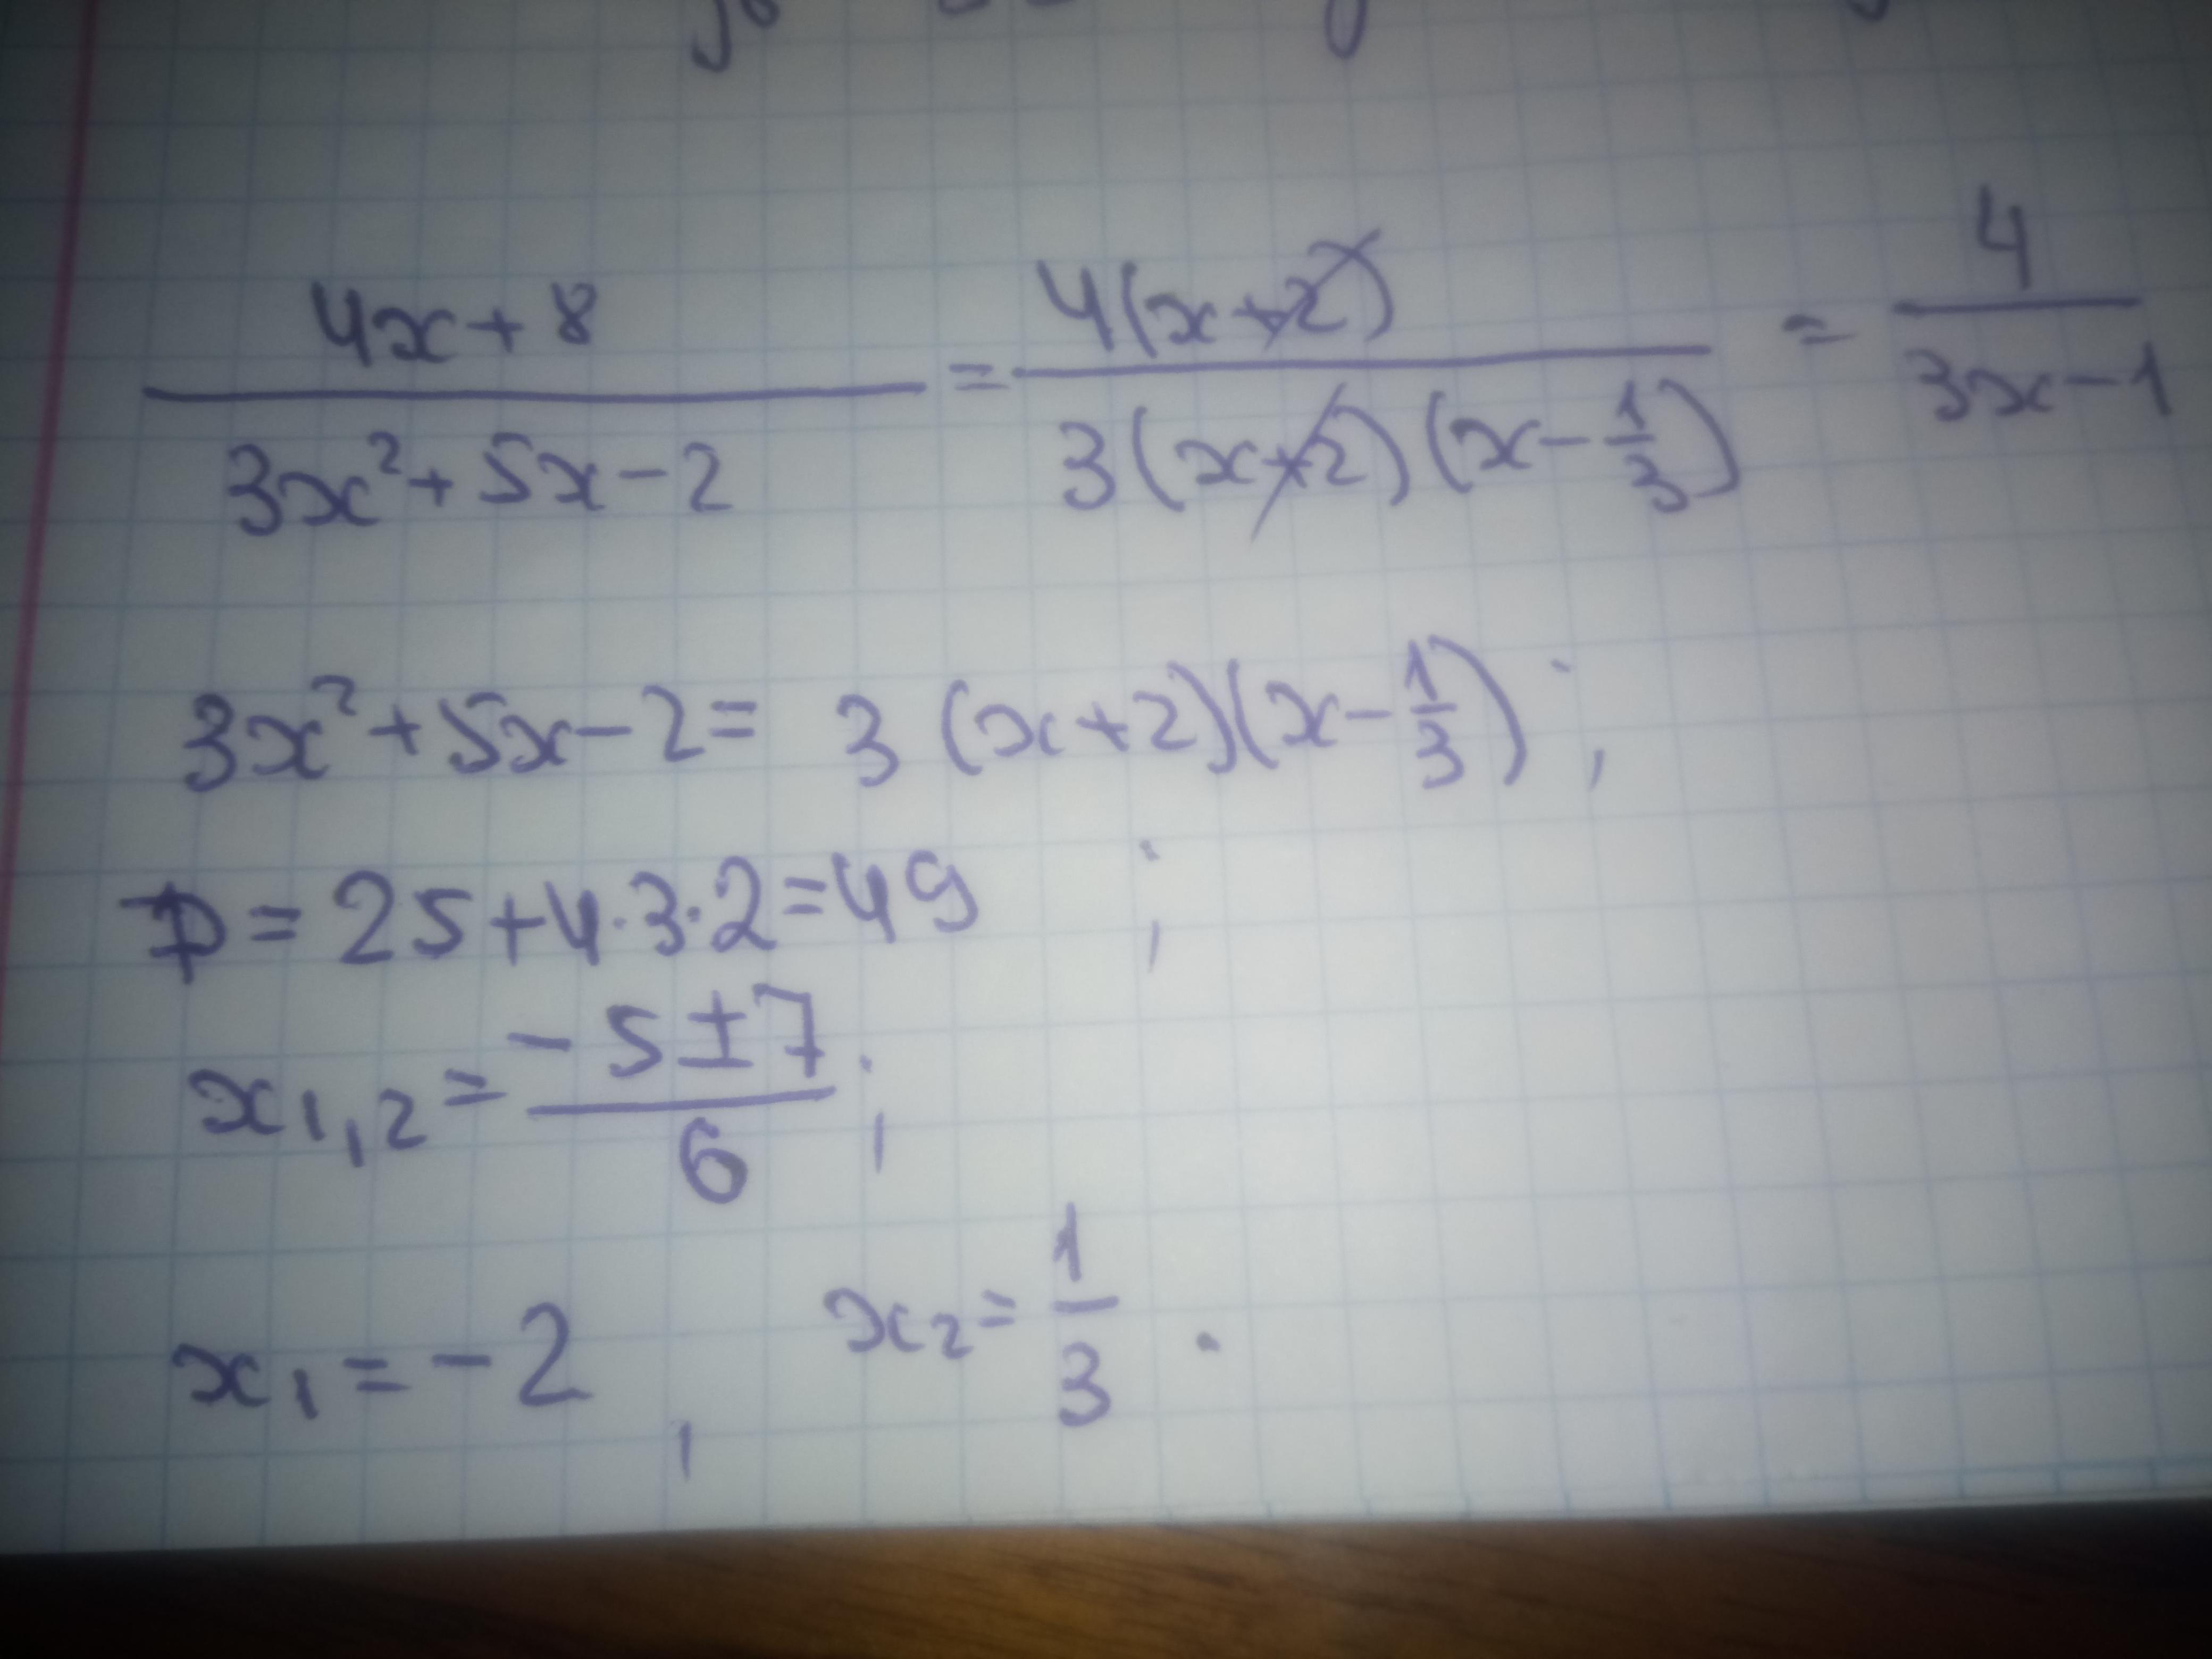 4x+8 / 3x²+5x-2 = 4(x+2) / 3(x+2)(x-1/3) = 4 / 3x-1
3x²+5x-2= 3(x+2)(x-1/3);
D=25+4·3·2=49 ;
x1,2 = -5±7 / 6 ;
x1=-2, x2=1/3.